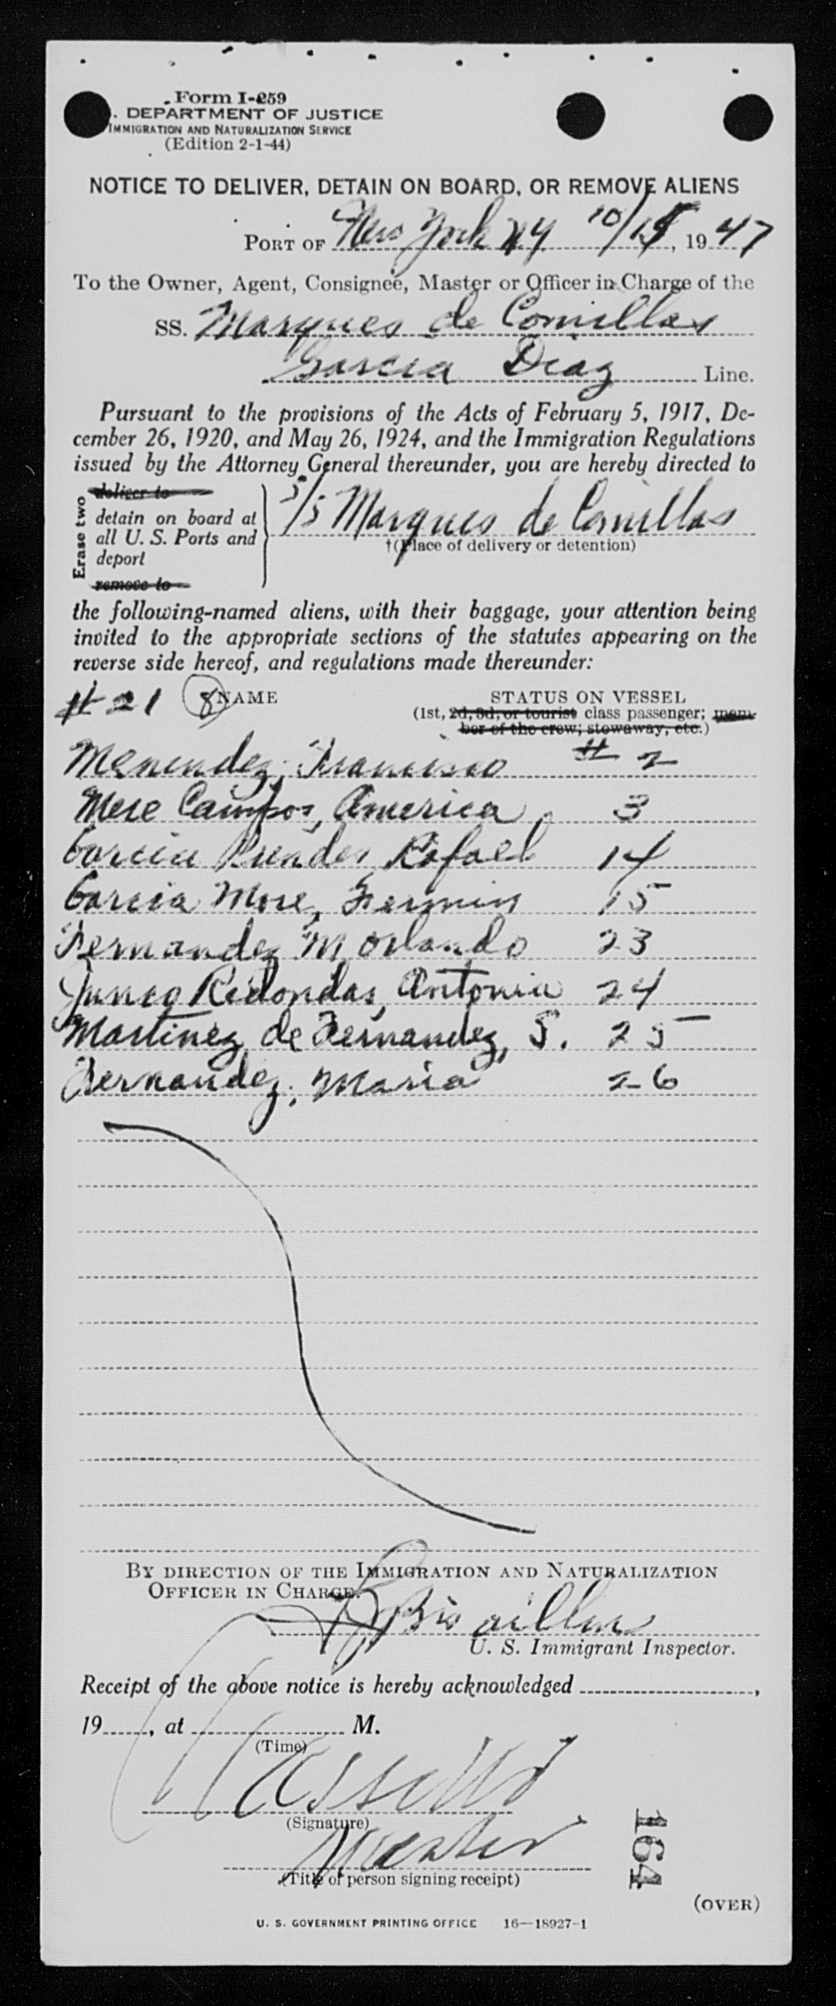 Form I-259
. DEPARTMENT OF JUSTICE
IMMIGRATION AND NATURALIZATION SERVICE
(Edition 2-1-44)
NOTICE TO DELIVER, DETAIN ON BOARD, OR REMOVE ALIENS
PORT OF New York NY 10/15, 1947
To the Owner, Agent, Consignee, Master or Officer in Charge of the
SS. Marques de Comillas
Garcia Diaz Line.
Pursuant to the provisions of the Acts of February 5, 1917, De-
cember 26, 1920, and May 26, 1924, and the Immigration Regulations
issued by the Attorney General thereunder, you are hereby directed to
Erase two
deliver to
detain on board at
all U. S. Ports and
deport
remove to
S/S Marques de Comillas
†(Place of delivery or detention)
the following-named aliens, with their baggage, your attention being
invited to the appropriate sections of the statutes appearing on the
reverse side hereof, and regulations made thereunder:
# 21 8 NAME STATUS ON VESSEL
(1st, 2d, 3d, or tourist class passenger; mem-
ber of the crew; stowaway, etc.)
Menendez, Francisco # 2
Mere Campos, America 3
Garcia Prendes Rafael 14
Garcia More, Fermin 15
Fernandez M Orlando 23
Junco Redondas, Antonia 24
Martinez de Fernandez, S. 25
Fernandez, Maria 26
BY DIRECTION OF THE IMMIGRATION AND NATURALIZATION
OFFICER IN CHARGE.
U. S. Immigrant Inspector.
Receipt of the above notice is hereby acknowledged ,
19 , at M.
(Time)
(Signature)
Master
(Title of person signing receipt)
164
(OVER)
U. S. GOVERNMENT PRINTING OFFICE 16—18927-1